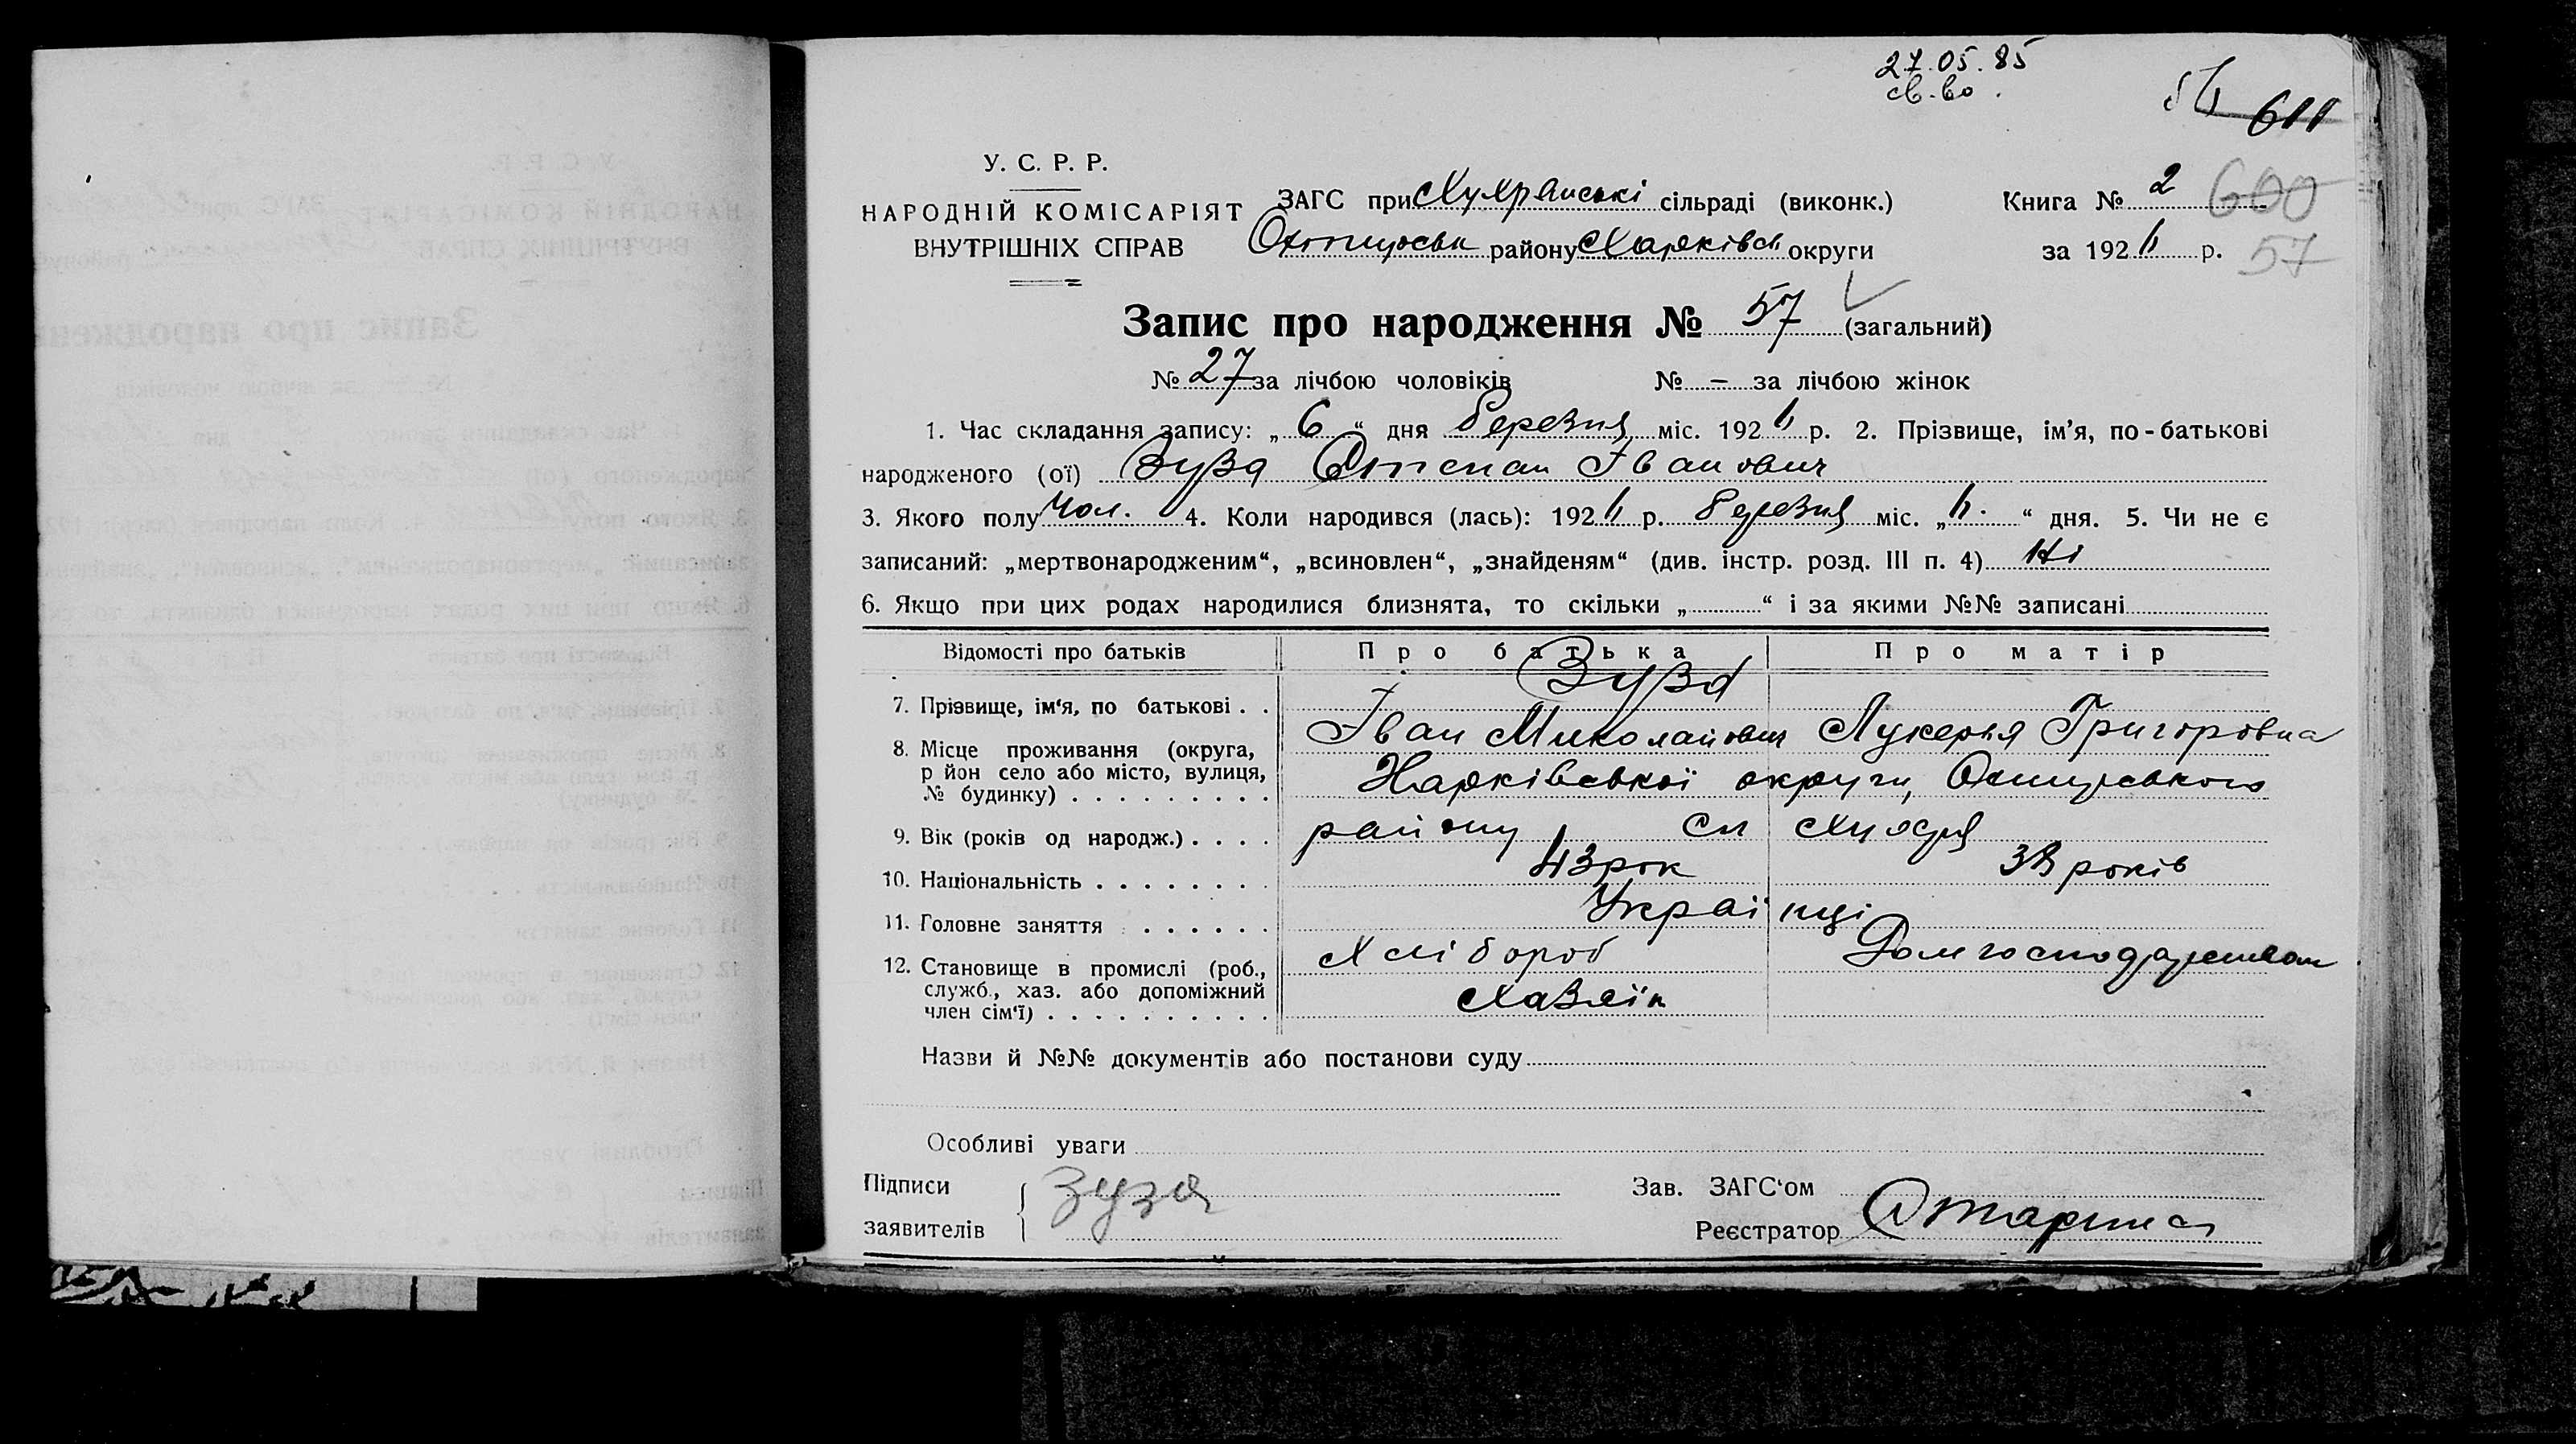 27.05.85
св-во.
611
У. С. Р. Р.
НАРОДНІЙ КОМІСАРІЯТ
ВНУТРІШНІХ СПРАВ
ЗАГС при Хухрянські сільраді (виконк.)
району Харківськ округи
Книга № 2 600
за 192 р. 57
Запис про народження № 57 (загальний)
№ 27 за лічбою чоловіків № – за лічбою жінок
1. Час складання запису: „ 6 “ дня березня міс. 192 р. 2. Прізвище, ім’я, по-батькові
народженого (ої) Зуза Степан Іванович
3. Якого полу чол. 4. Коли народився (лась): 192 р. березня міс. „ “ дня. 5. Чи не є
записаний: „мертвонародженим“, „всиновлен“, „знайденям“ (див. інстр. розд. III п. 4) Ні
6. Якщо при цих родах народилися близнята, то скільки „ “ і за якими №№ записані
Відомості про батьків Про батька Про матір
7. Прізвище, ім‘я, по батькові . . Зуза
Іван Миколайович Лукерья Григоровна
8. Місце проживання (округа,
р йон село або місто, вулиця,
№ будинку) . . . . . . . . . Харківської округи,
9. Вік (років од народж.) . . . . району
43 рок 38 років
10. Національність . . . . . . . . Українці
11. Головне заняття . . . . . . Хлібороб Домгосподарством
12. Становище в промислі (роб.,
служб., хаз. або допоміжний
член сім‘ї) . . . . . . . . . . Хазяїн
Назви й №№ документів або постанови суду
Особливі уваги
Підписи
заявителів
Зузя
Зав. ЗАГС‘ом
Реєстратор